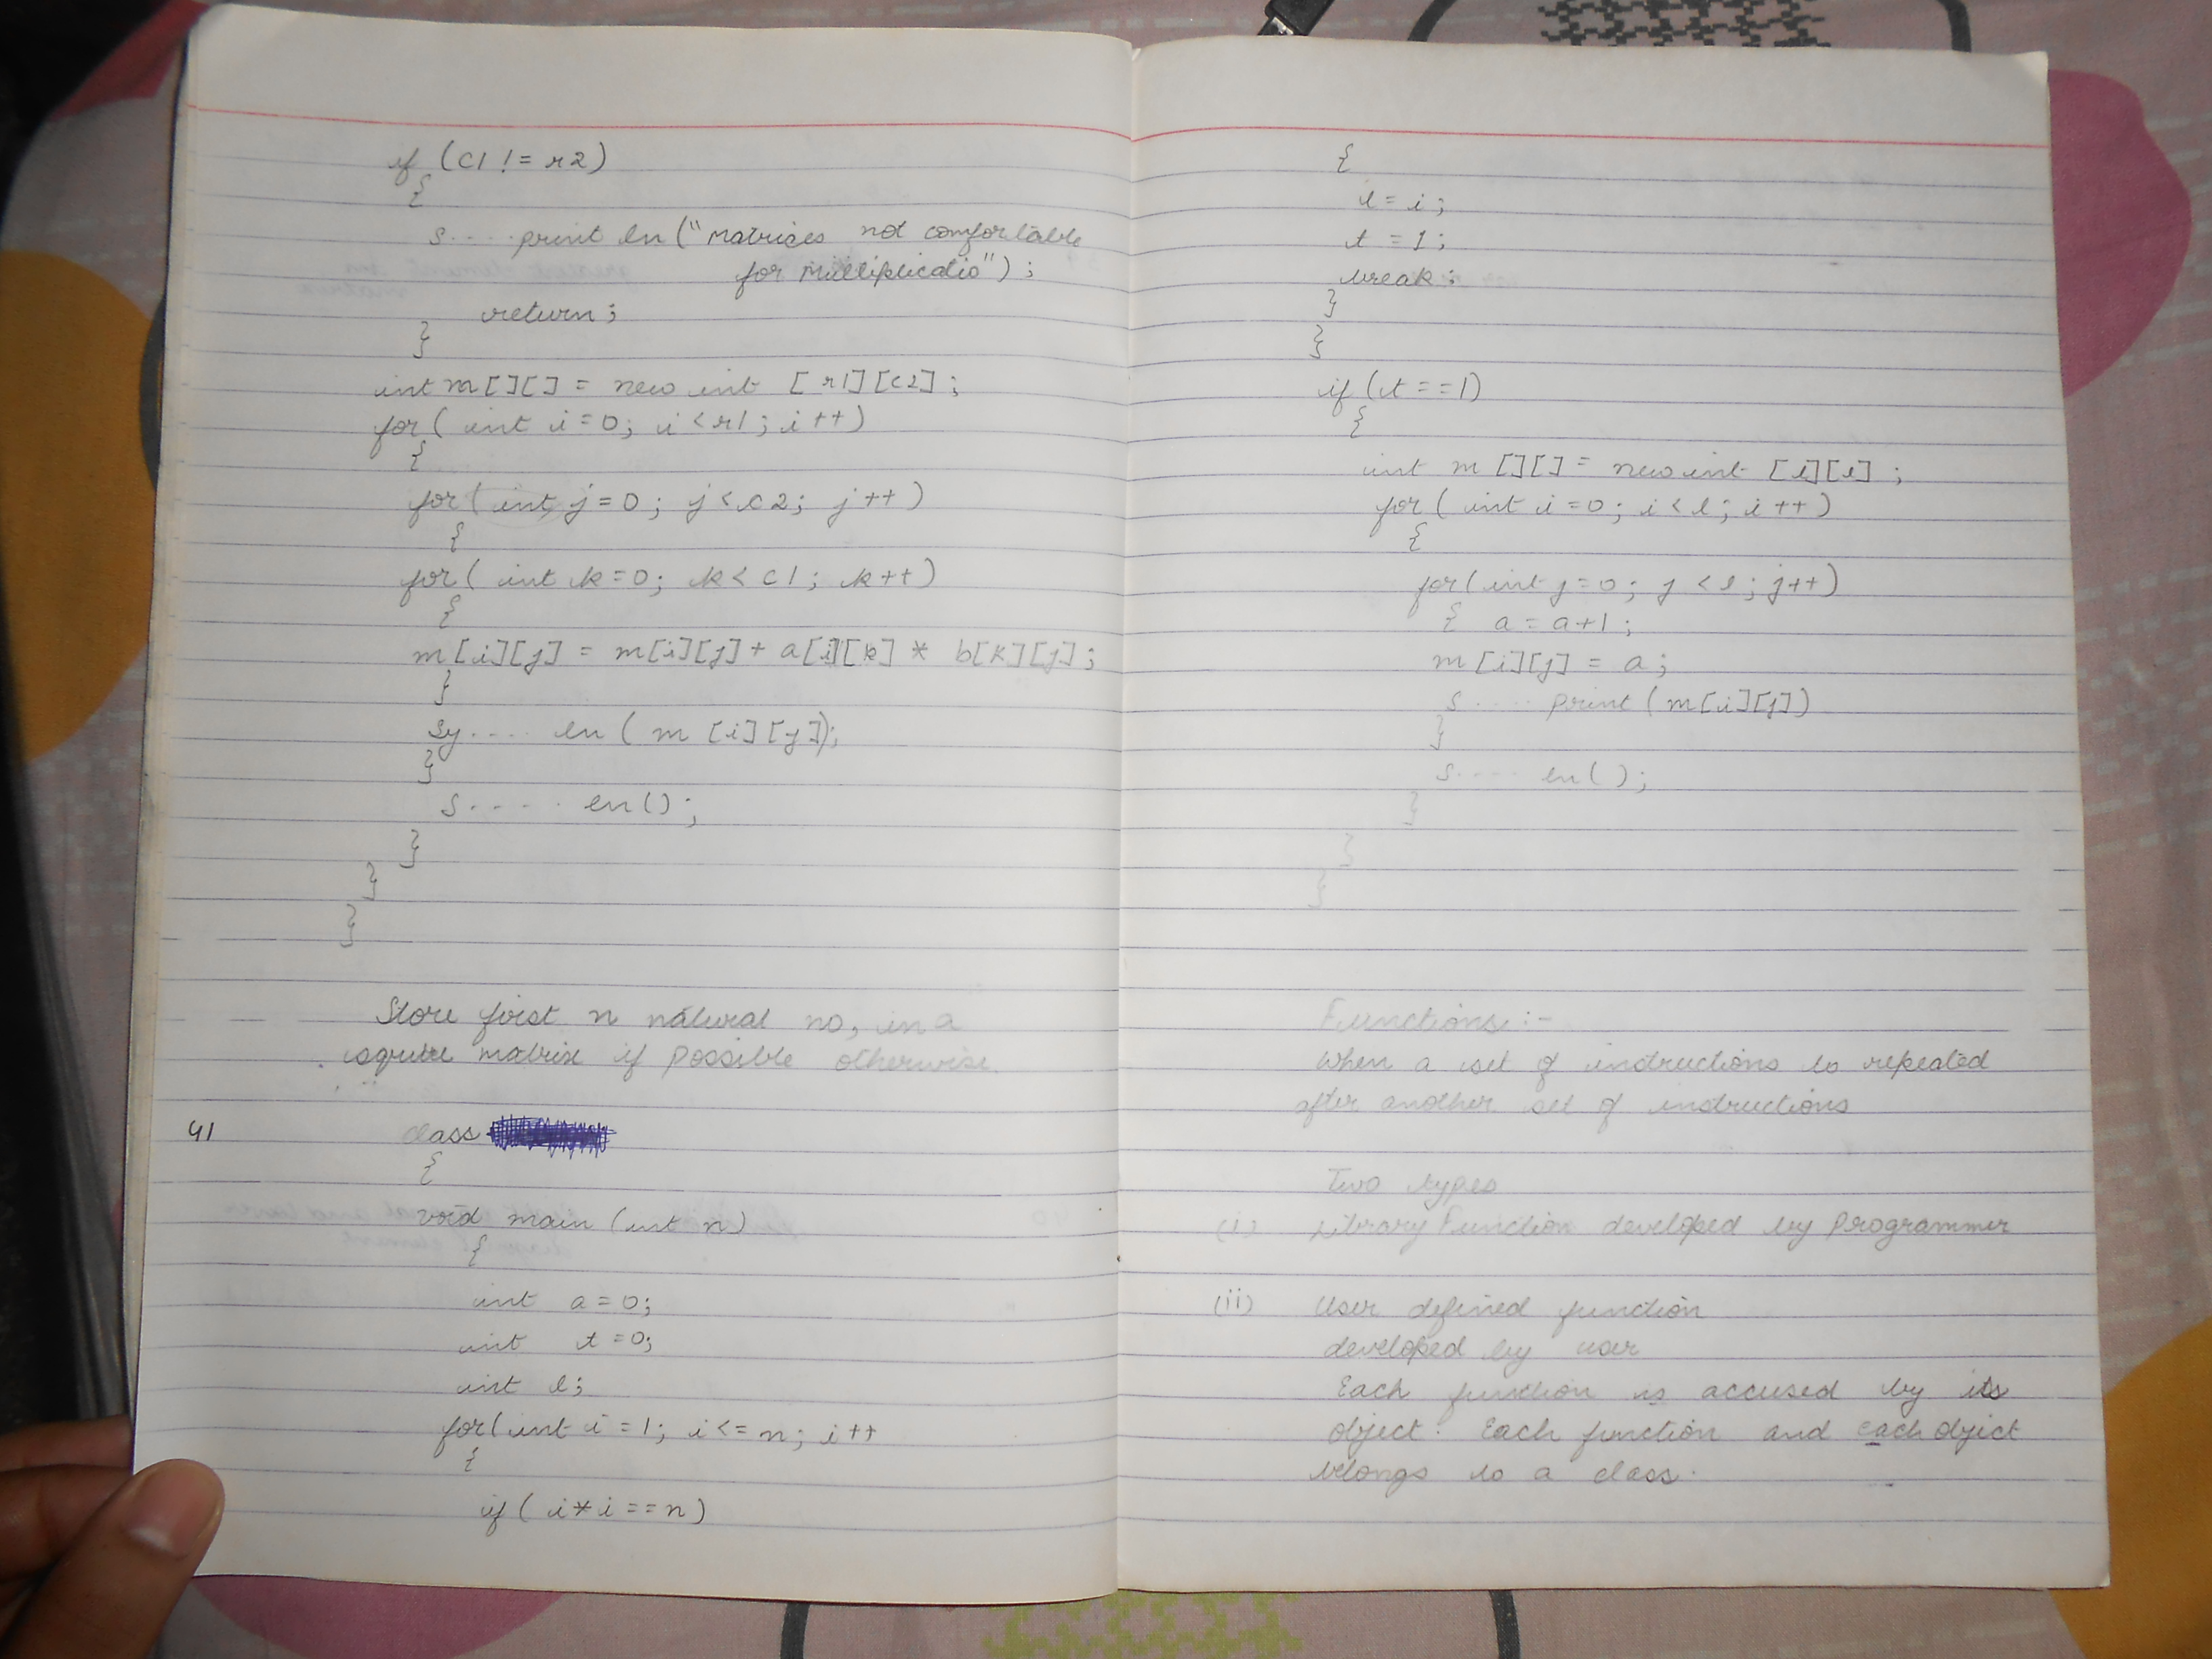 if (c1 != r2)
{
s.... print ln ("Matrices not comfortable
for Multiplicatio");
return;
}
int m[][] = new int [r1][c2];
for( int i=0; i<r1; i++)
{
for( int j=0; j<c2; j++)
{
for( int k=0; k<c1; k++)
{
m[i][j] = m[i][j] + a[i][k] * b[k][j];
}
Sy.... ln ( m [i][j]);
}
S..... ln();
}
}
}
Store first n natural no, in a
matrix if possible otherwise
41 class
{
void main (int n)
{
int a=0;
int t=0;
int l;
for(int i=1; i<=n; i++
{
if ( i*i==n)
{
l=i;
t=1;
break;
}
}
if (t==1)
{
int m [][] = new int [l][l];
for( int i=0; i<l; i++)
{
for(int j=0; j<l; j++)
{ a=a+1;
m[i][j] = a;
s..... print (m[i][j])
}
s.... ln();
}
}
}
Functions:-
When a set of instructions is repeated
after another set of instructions
Two types
(i) Library Function developed by programmer
(ii) User defined function
developed by user
Each function is accused by its
object. Each function and each object
belongs to a class.